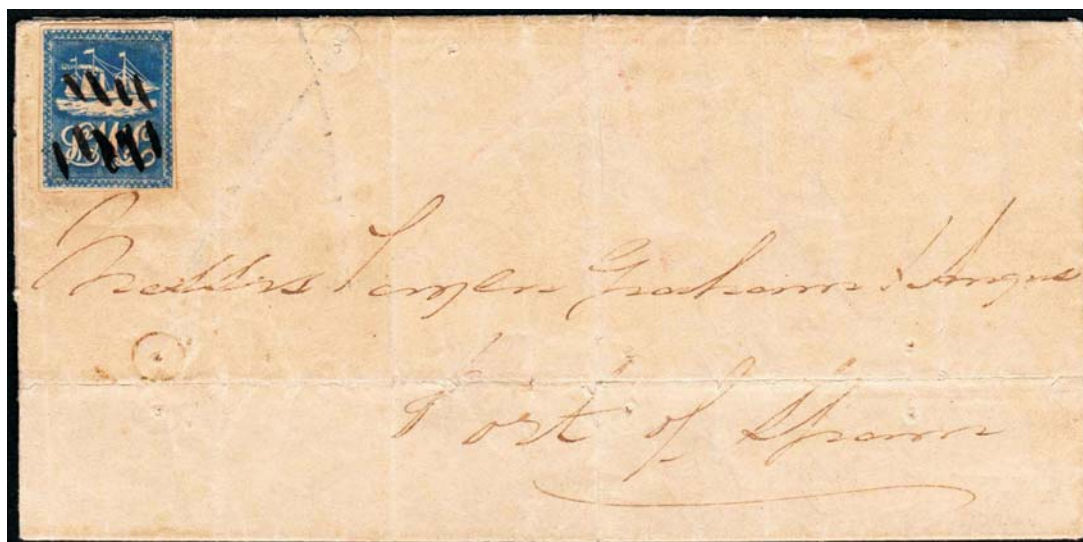 Messrs Graham & Angus
Port of Spain